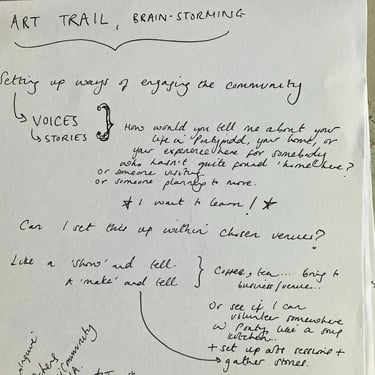 ART TRAIL, BRAIN-STORMING
Setting up ways of engaging the community
VOICES
STORIES
How would you tell me about your
life in Pontypridd, your home, or
your experience here for somebody
who hasn't quite found 'home' here?
Or someone visiting
Or someone planning to move.
* I want to learn! *
Can I set this up within chosen venues?
Like a 'show' and tell.
A 'make' and tell
Coffee, tea... bring to
business/venue...
Or see if I can
volunteer somewhere
w Ponty like a soup
kitchen...
+ set up arts sessions +
gather stories.
Community